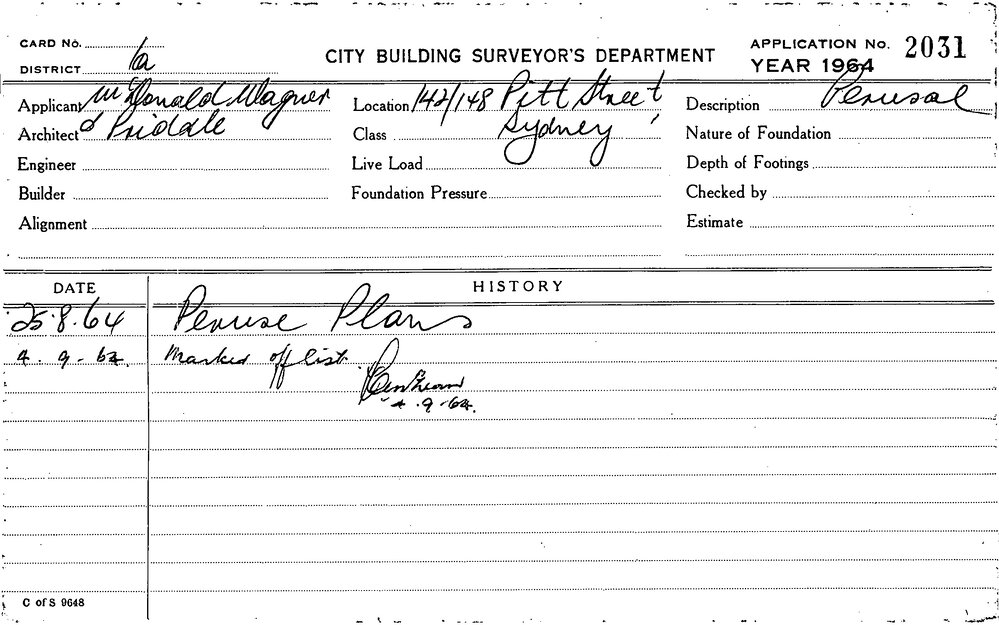 CARD No.
DISTRICT 6a
CITY BUILDING SURVEYOR'S DEPARTMENT
APPLICATION No. 2031
YEAR 1964
Applicant McDonald Wagner
Architect & Priddle
Engineer
Builder
Alignment
Location 142/148 Pitt Street
Class Sydney
Live Load
Foundation Pressure
Description Perusal
Nature of Foundation
Depth of Footings
Checked by
Estimate
DATE HISTORY
25.8.64 Peruse Plans
4.9-64. Marked off list.
4.9-64.
C of S 9648